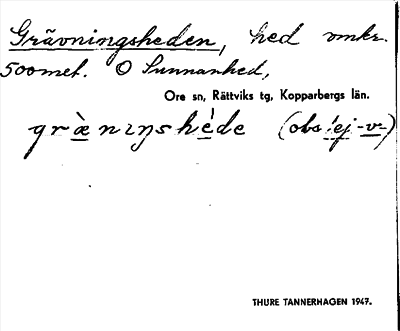 Grävningsheden, hed omkr.
500 met. O Sunnanhed,
Ore sn, Rättviks tg, Kopparbergs län.
græ̀niŋshéde (obs! ej -v-)
THURE TANNERHAGEN 1947.